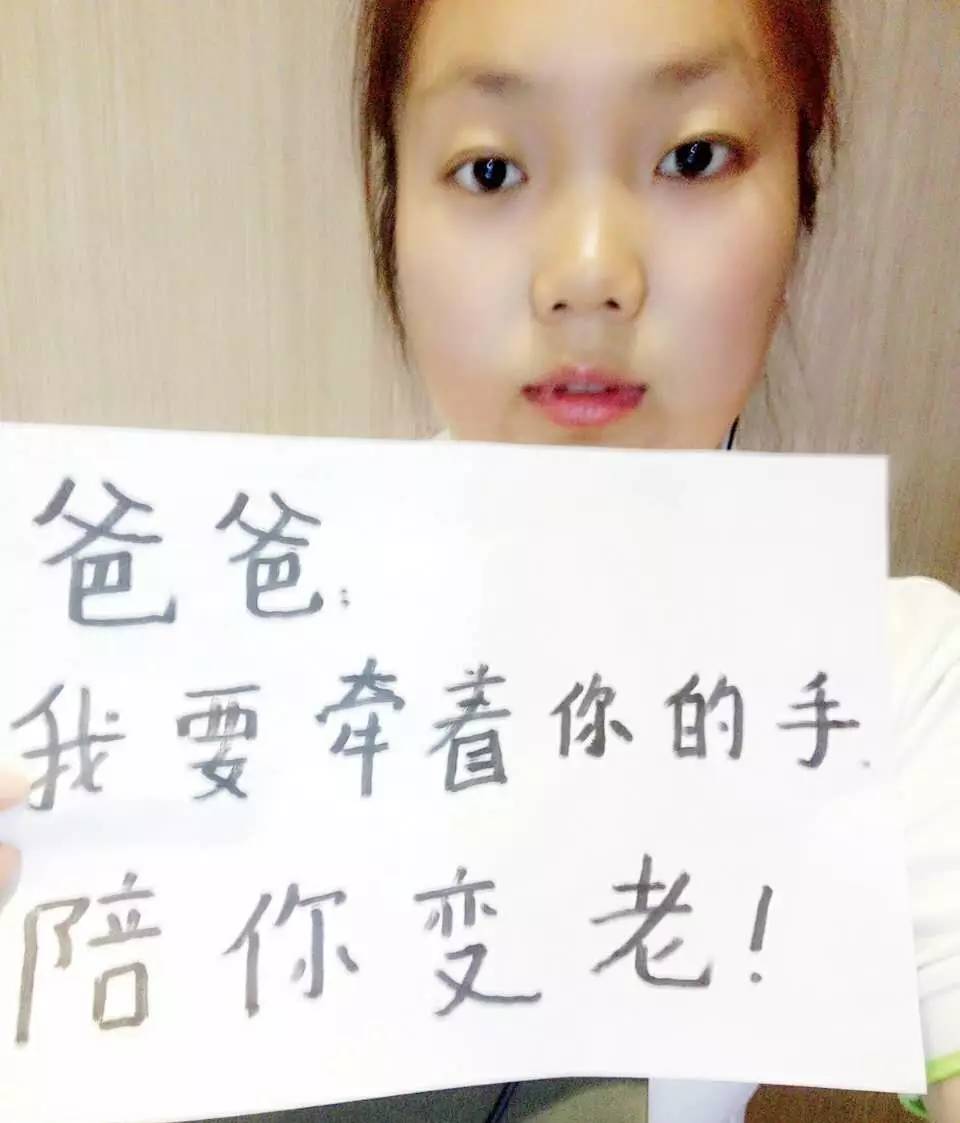 爸爸:
我要牵着你的手.
陪你变老!